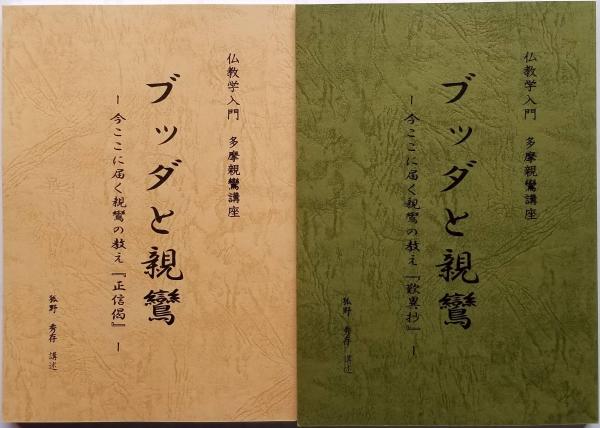 仏教学入門 多摩親鸞講座
ブッダと親鸞
－今ここに届く親鸞の教え『正信偈』－
狐野 秀存 講述
仏教学入門 多摩親鸞講座
ブッダと親鸞
－今ここに届く親鸞の教え『歎異抄』－
狐野 秀存 講述